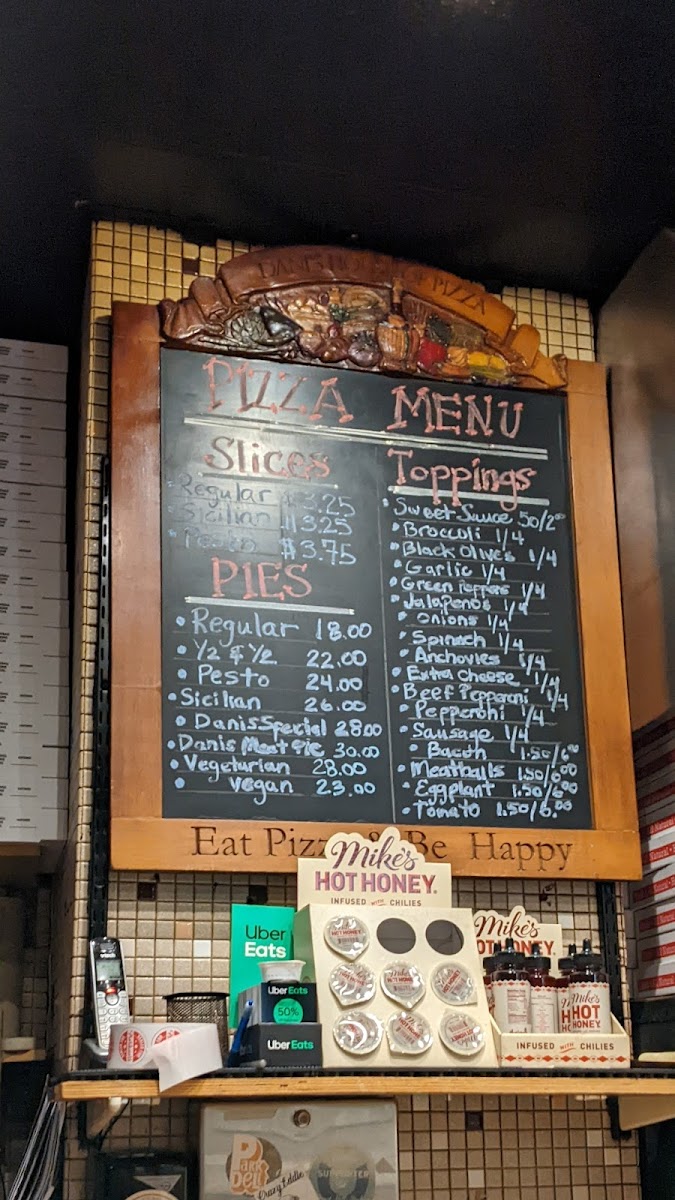 DANI'S HOUSE OF PIZZA
PIZZA MENU
Slices
Regular $3.25
Sicilian $3.25
Pesto $3.75
PIES
• Regular 18.00
• 1/2 & 1/2 22.00
• Pesto 24.00
• Sicilian 26.00
• Danis Special 28.00
• Danis Meat Pie 30.00
• Vegeturian 28.00
• vegan 23.00
Toppings
• Sweet Sauce 50/2.00
• Broccoli 1/4
• Black Olives 1/4
• Garlic 1/4
• Green Peppers 1/4
• Jalapenos 1/4
• Onions 1/4
• Spinach 1/4
• Anchovies 1/4
• Extra cheese 1/4
• Beef Pepperoni 1/4
• Pepperohi 1/4
• Sausage 1/4
• Bacon 1.50/6.00
• Meatballs 1.50/6.00
• Eggplant 1.50/6.00
• Tomato 1.50/6.00
Eat Pizza & Be Happy
Mike's
HOT HONEY
INFUSED WITH CHILIES
Uber
Eats
Uber Eats
50%
Uber Eats
Mike's
HOT HONEY
Mike's
HOT
HONEY
INFUSED WITH CHILIES
Park
Deli
Crazy Eddie
SUPPORTER